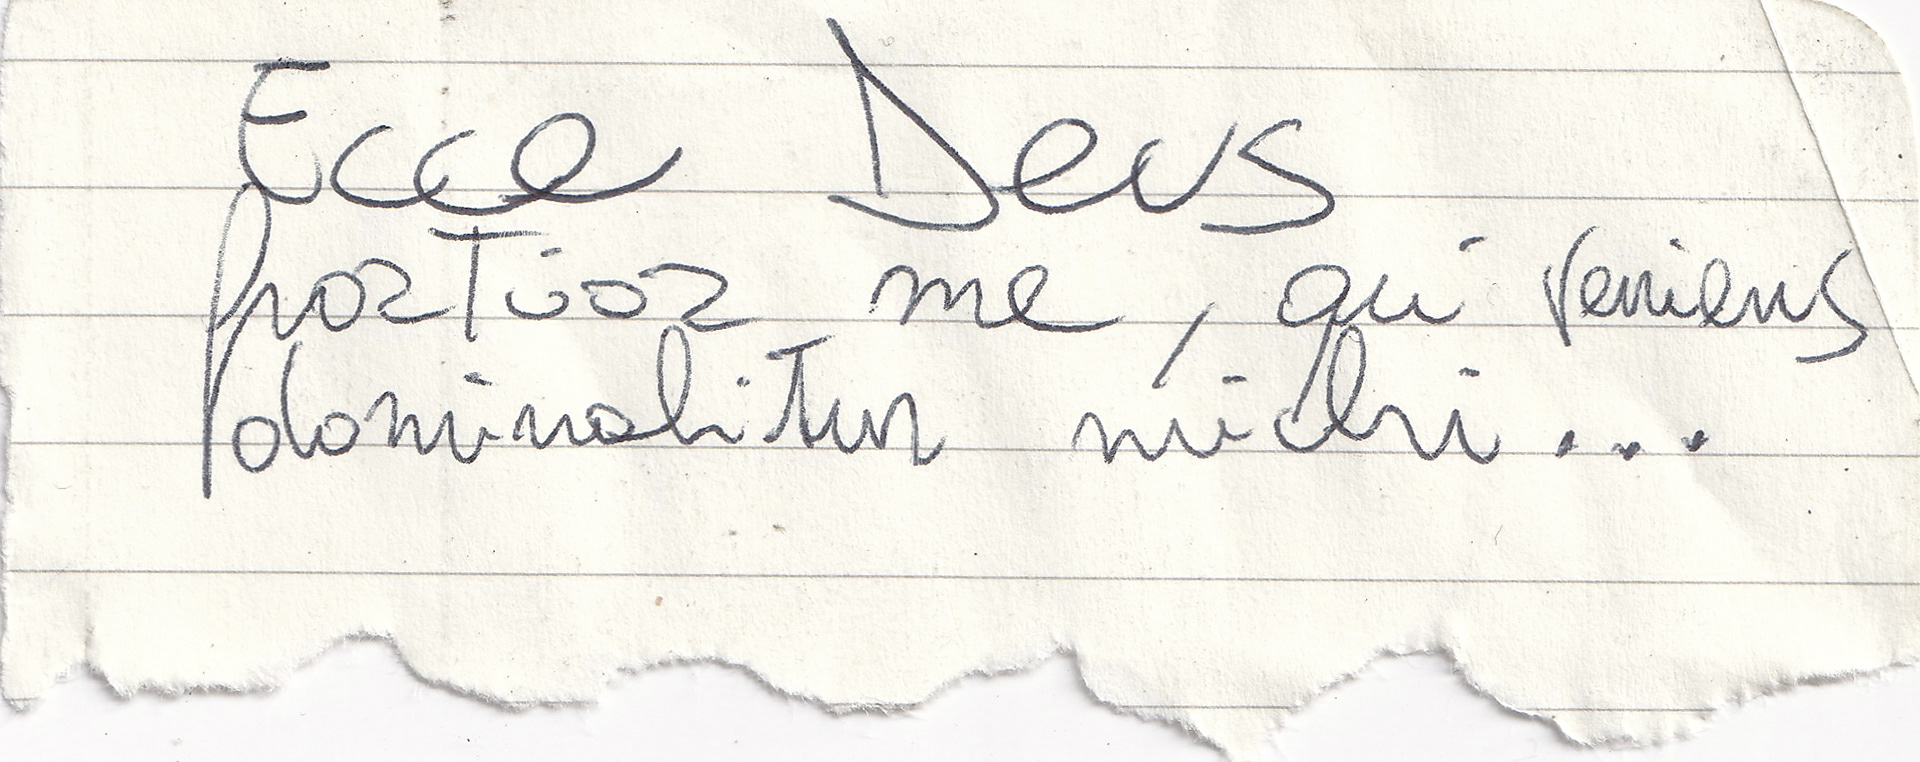 Ecce Deus
fortior me, qui veniens
dominabitur michi...